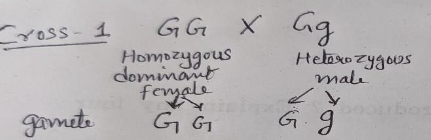 Cross-1 GG X Gg
Homozygous Heterozygous
dominant male
female
gamete G G G. g